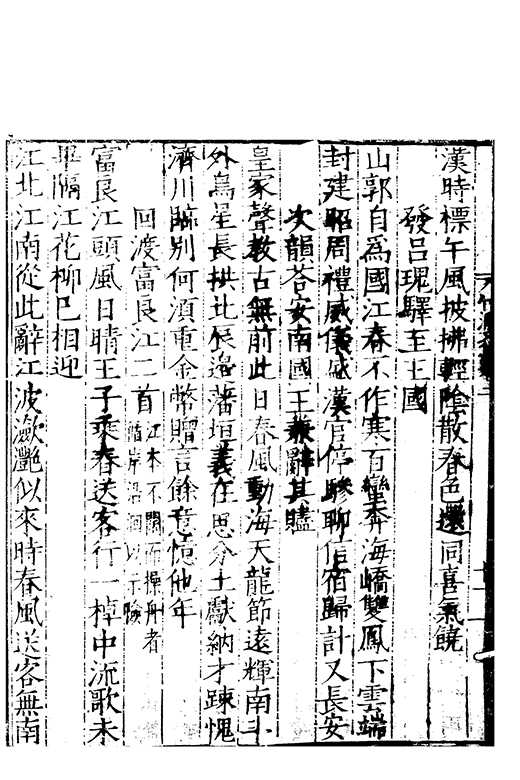 漢時標午風披拂輕陰散春色還同喜氣饒
發呂瑰驛至王國
山郭自爲國江春不作寒百蠻奔海嶠雙鳳下雲端
封建昭周禮威儀盛漢官停驂聊信宿歸計又長安
次韻荅安南國王兼辭其贐
皇家聲教古無前此日春風動海天龍節遠輝南斗
外烏星長拱北辰邊藩垣義在思分土獻納才踈愧
濟川臨別何須重金幣贈言餘意憶他年
回渡富良江二首江水不闊而操舟者
富良江頭風日晴王子乘春送客行一棹中流歌未
畢隔江花柳已相迎
江北江南從此辭江波瀲灧似來時春風送客無南